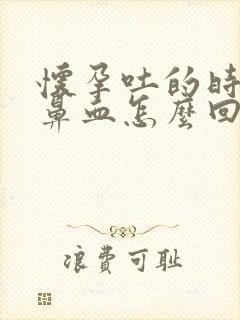 懷孕吐的時
鼻血怎麼回
浪費可耻